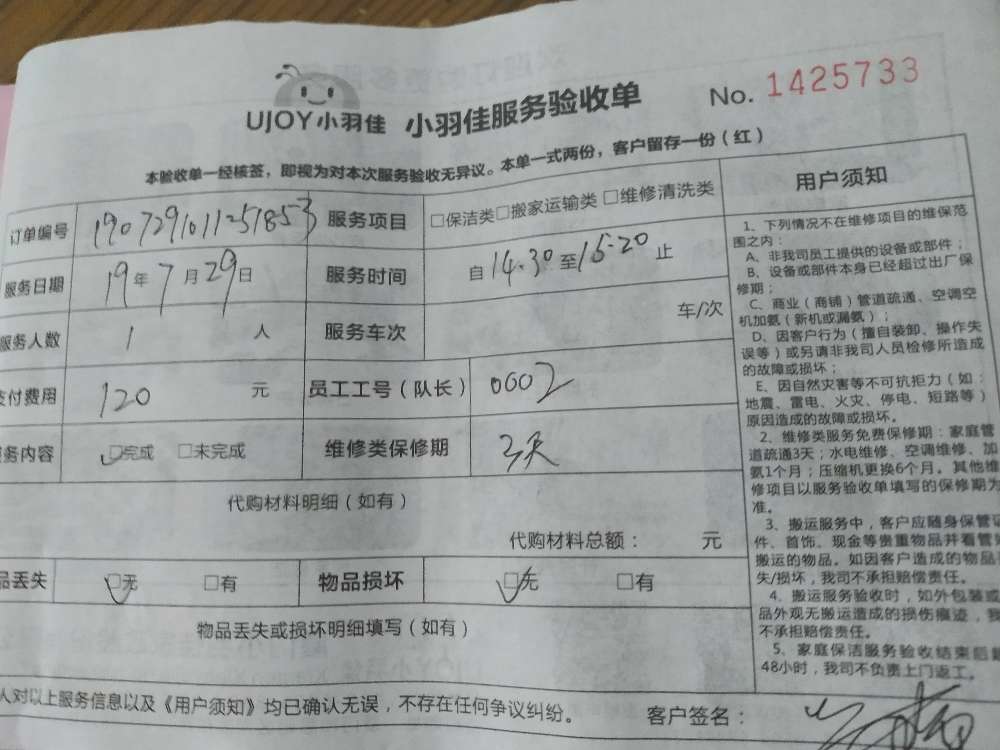 UJOY小羽佳 小羽佳服务验收单 No. 1425733
本验收单一经核签，即视为对本次服务验收无异议。本单一式两份，客户留存一份（红）
订单编号 1907291011251853 服务项目 □保洁类□搬家运输类 □维修清洗类
服务日期 19年7月29日 服务时间 自14.30至15.20止
服务人数 1 人 服务车次 车/次
支付费用 120 元 员工工号（队长） 0002
务内容 □完成 □未完成 维修类保修期 3天
代购材料明细（如有）
代购材料总额： 元
品丢失 □无 □有 物品损坏 □无 □有
物品丢失或损坏明细填写（如有）
人对以上服务信息以及《用户须知》均已确认无误，不存在任何争议纠纷。 客户签名：
用户须知
1、下列情况不在维修项目的维保范
围之内：
A、非我司员工提供的设备或部件；
B、设备或部件本身已经超过出厂保
修期；
C、商业（商铺）管道疏通、空调空
机加氨（新机或漏氨）；
D、因客户行为（擅自装卸、操作失
误等）或另请非我司人员检修所造成
的故障或损坏；
E、因自然灾害等不可抗拒力（如：
地震、雷电、火灾、停电、短路等）
原因造成的故障或损坏。
2、维修类服务免费保修期：家庭管
道疏通3天；水电维修、空调维修、加
氨1个月；压缩机更换6个月。其他维
修项目以服务验收单填写的保修期为
准。
3、搬运服务中，客户应随身保管证
件、首饰、现金等贵重物品并看管
搬运的物品。如因客户造成的物品
失/损坏，我司不承担赔偿责任。
4、搬运服务验收时，如外包装或
品外观无搬运造成的损伤痕迹，我
不承担赔偿责任。
5、家庭保洁服务验收结束后超
48小时，我司不负责上门返工。